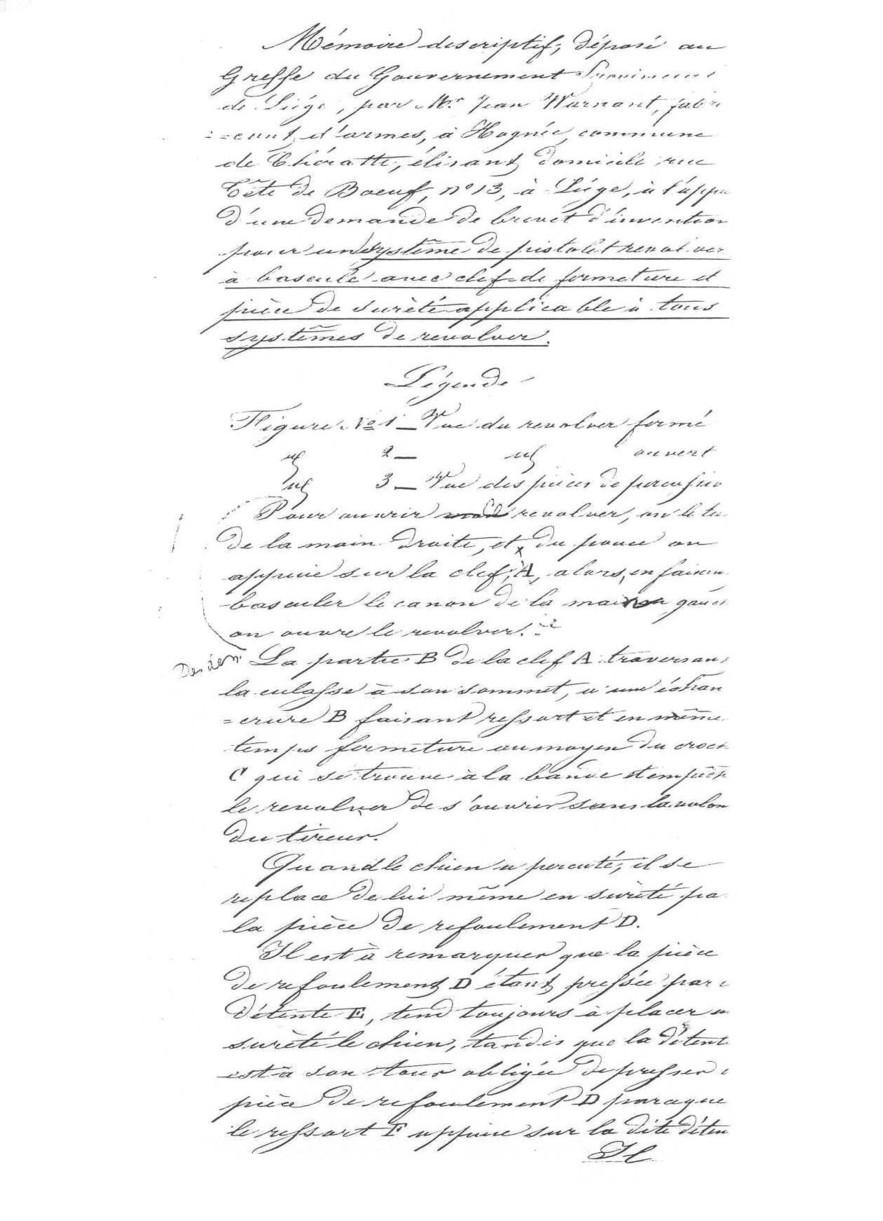 Mémoire descriptif, déposé au
Greffe du Gouvernement
de Liége, par Mr. Jean Warnant, fabri
=cant, d'armes, à Hognée, commune
de Chératte, élisant domicile rue
Tête de Boeuf, n° 13, à Liége, à l'appu
d'une demande de brevet d'invention
pour un système de pistolet revolver
à bascule avec clef de fermeture et
pièce de sureté applicable à tous
systêmes de revolver.
Légende
Figure No 1 _ Vue du revolver fermé
id 2 _ id ouvert
id 3 _ Vue des pièces de percussio
Pour ouvrir revolver, on le
de la main droite, et, du pouce on
appuie sur la clef, A, alors, en faisan
basculer le canon de la main gauc
on ouvre le revolver.
La partie B de la clef A traversan
la culasse à son sommet, a une échan
=crure B faisant ressort et en même
temps fermeture au moyen du croch
C qui se trouve à la bande et empêch
le revolver de s'ouvrir sans la volon
du tireur.
Quand le chien a percuté, il se
replace de lui même en sûreté pa
la pièce de refoulement D.
Il est à remarquer que la pièce
de refoulement D étant pressée par
détente E, tend toujours à placer
sureté le chien, tandis que la détent
est à son tour obligée de presser
pièce de refoulement D parceque
le ressort F appuie sur la dite déten